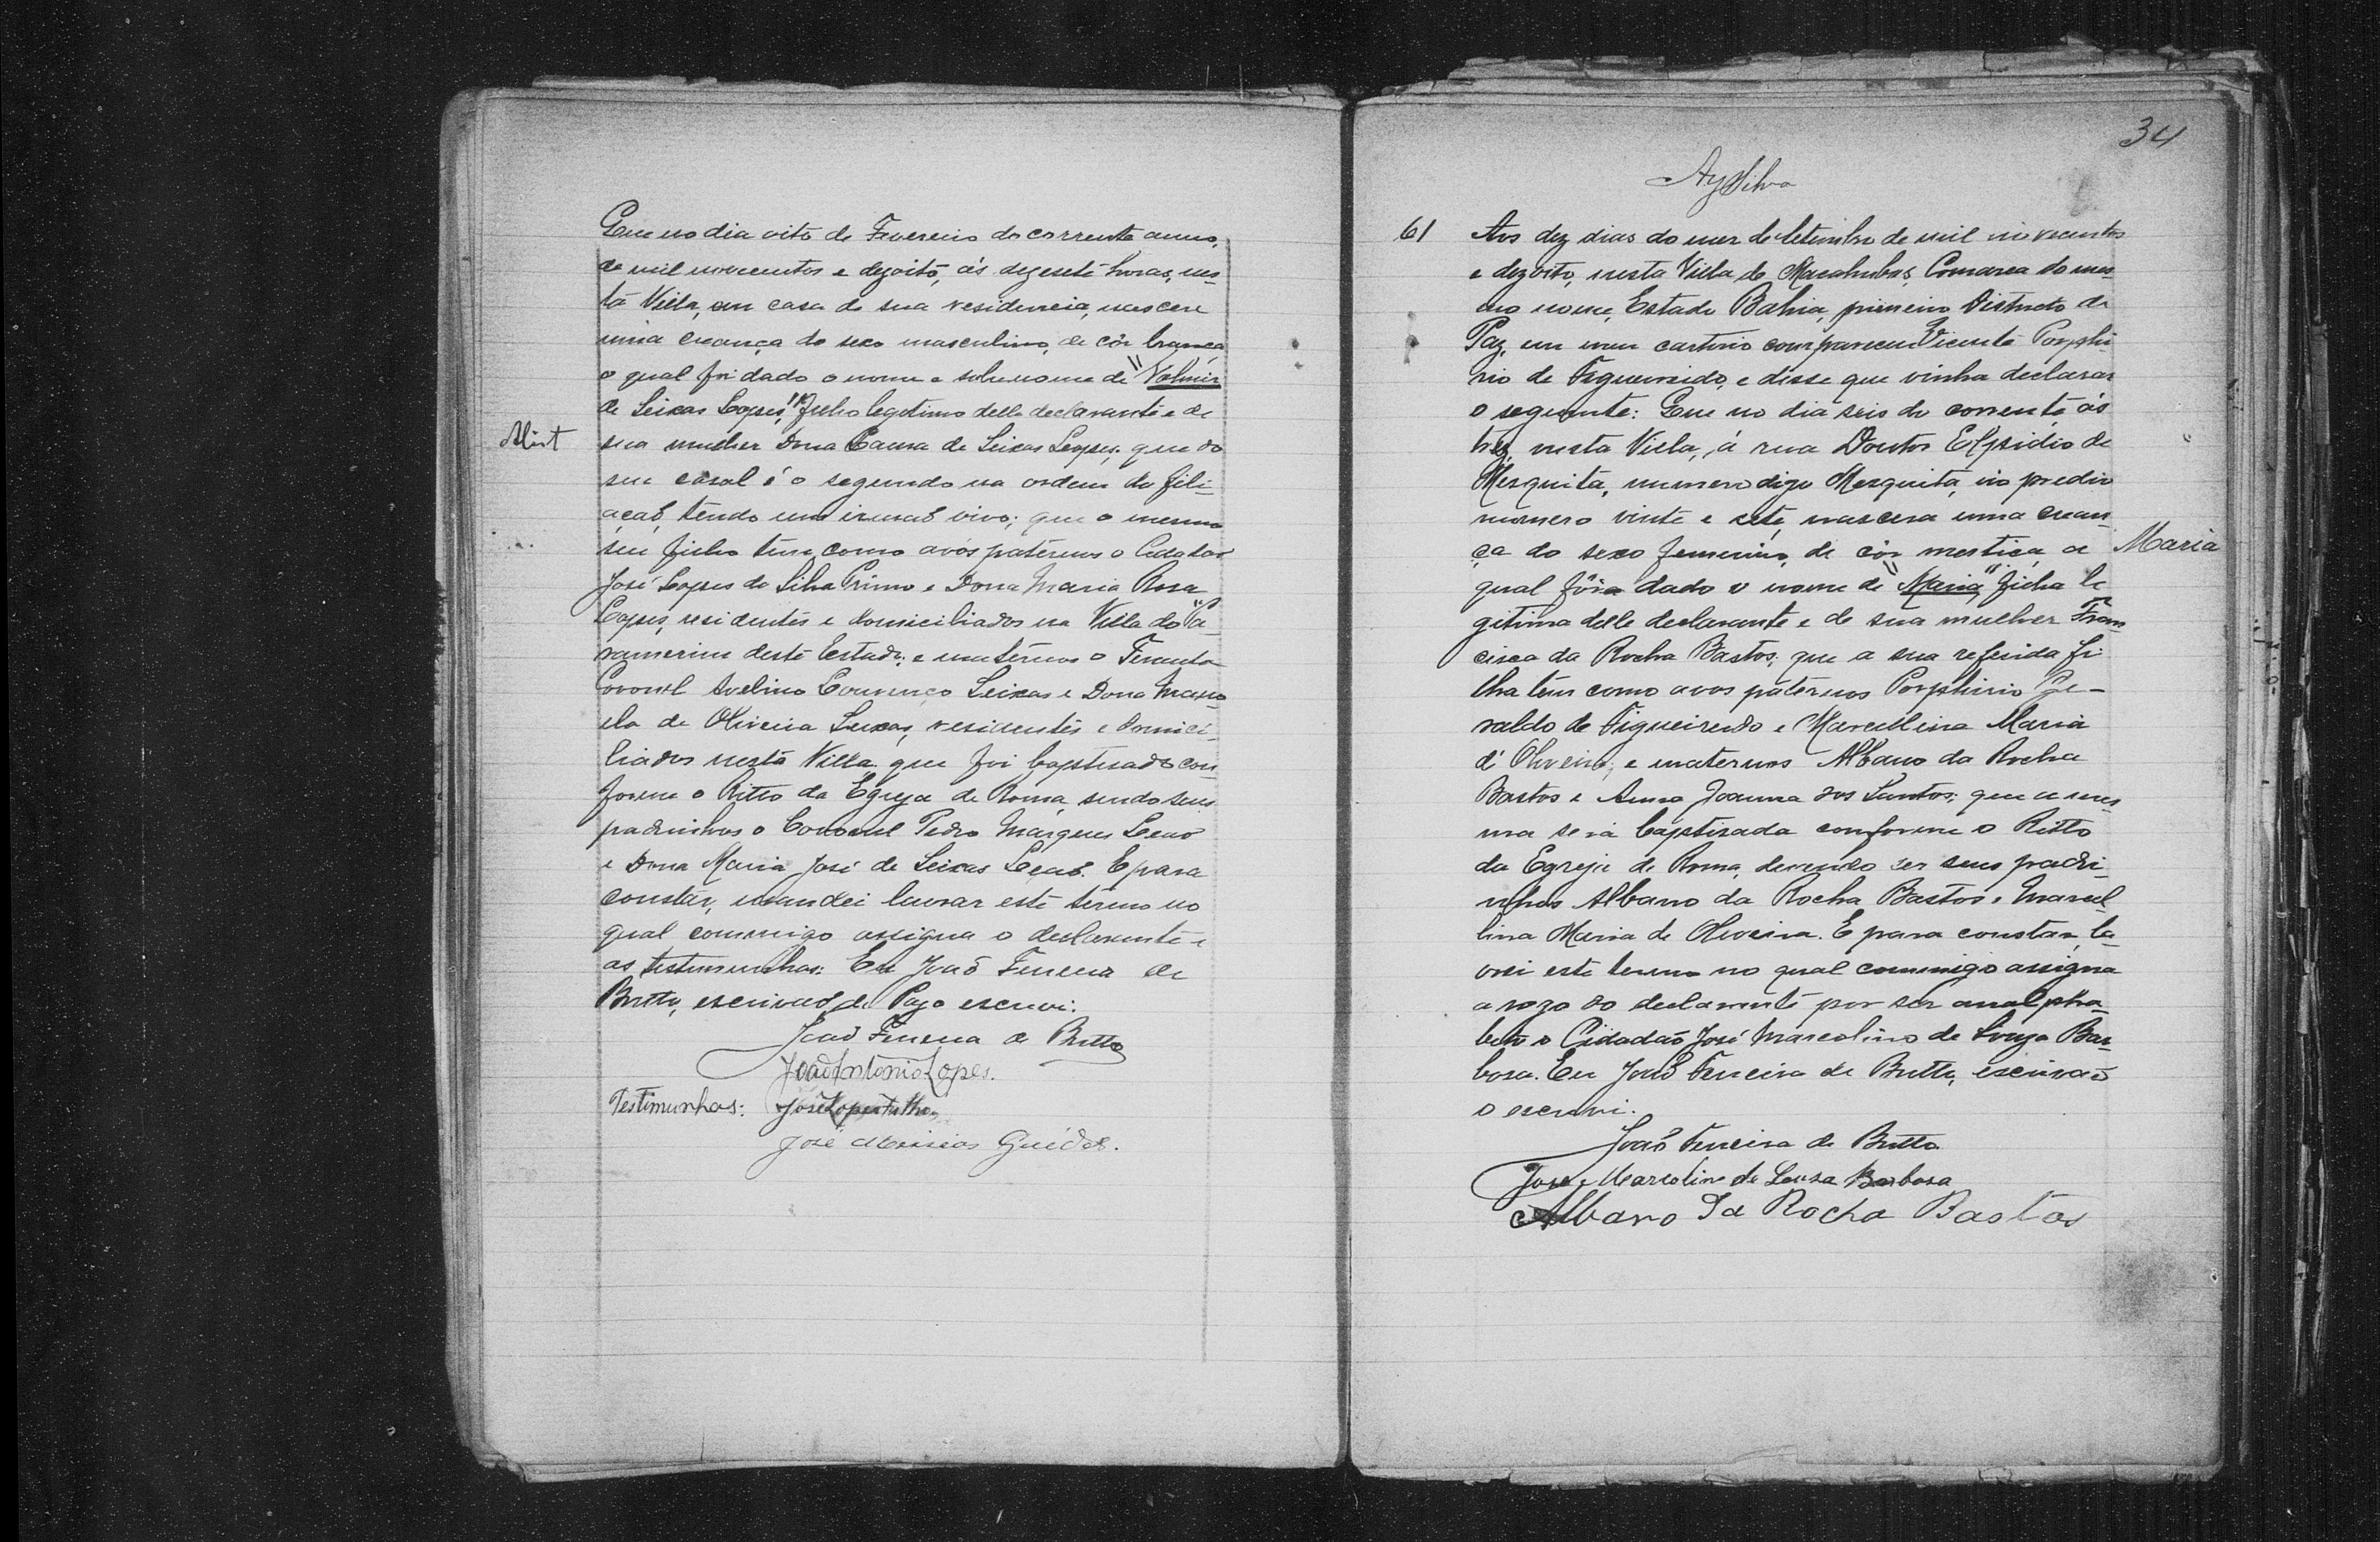 Que no dia oito de Fevereiro do corrente anno,
de mil novecentos e dezoito, ás dezesete horas, nes-
ta Villa, em casa de sua residencia, nasceu
uma creança do sexo masculino, de côr branca
o qual foi dado o nome e sobrenome de "Valmir
de Seixas Lopes," filho legitimo delle declarante e de
sua mulher Dona Laura de Seixas Lopes; que do
seu casal é o segundo na ordem da fili-
açaõ, tendo um irmaõ vivo; que o mesmo
seu filho tem como avós patérnos o Cidadaõ
José Lopes da Silva Primo e Dona Maria Rosa
Lopes, residentes e domiciliados na Villa do "Pa-
ramerim deste Estado; e matérnos o Tenente
Coronel Avelino Lourenço Seixas e Dona Mano-
ela de Oliveira Seixas, residentes e domici-
liados nesta Villa. que foi baptisado con-
forme o Ritto da Egreja de Roma, sendo seus
padrinhos o Coronel Pedro Marques Leaõ
e Dona Maria José de Seixas Leaõ. E para
constar, mandei lavrar este termo no
qual commigo assigna o declarante e
as testimunhas: Eu João Ferreira de
Britto, escrivaõ de Paz o escrevi.
João Ferreira de Britto
João Antonio Lopes.
Testimunhas: José Lopes Filho
José Messias Guédes.
34
61 Aos dez dias do mez de Setembro de mil novecentos
e dezoito, nesta Villa de Macahubas, Comarca do mes-
mo nome, Estado Bahia, primeiro Districto de
Paz, em meu cartorio compareceu Vicente Porphi-
rio de Figueiredo, e disse que vinha declarar
o seguinte: Que no dia seis do corrente, ás
trez, nesta Villa, á rua Doutor Elpsidio de
Mesquita, numero digo Mesquita, no predio
numero vinte e sete, nascera uma crean-
ça do sexo femenino, de côr mestiça, a Maria
qual fôra dado o nome de "Maria", filha le
gitima delle declarante e de sua mulher Fran
cisca da Rocha Bastos; que a sua referida fi-
lha têm como avos patérnos Porphirio Ge-
raldo de Figueiredo e Marcellina Maria
d'Oliveira; e maternos Albano da Rocha
Bastos e Anna Joanna dos Santos; que a mes-
ma será baptisada conforme o Ritto
da Egreja de Roma, devendo ser seus padri-
nhos Albano da Rocha Bastos e Marcel-
lina Maria de Oliveira. E para constar, la-
vrei este termo no qual commigo assigna
a rogo do declarante por ser analpha-
beto o Cidadão José Marcolino de Souza Bar-
bosa. Eu João Ferreira de Britto, escrivaõ
o escrevi.
João Ferreira de Britto
José Marcolino de Souza Barbosa
Albano Da Rocha Bastos